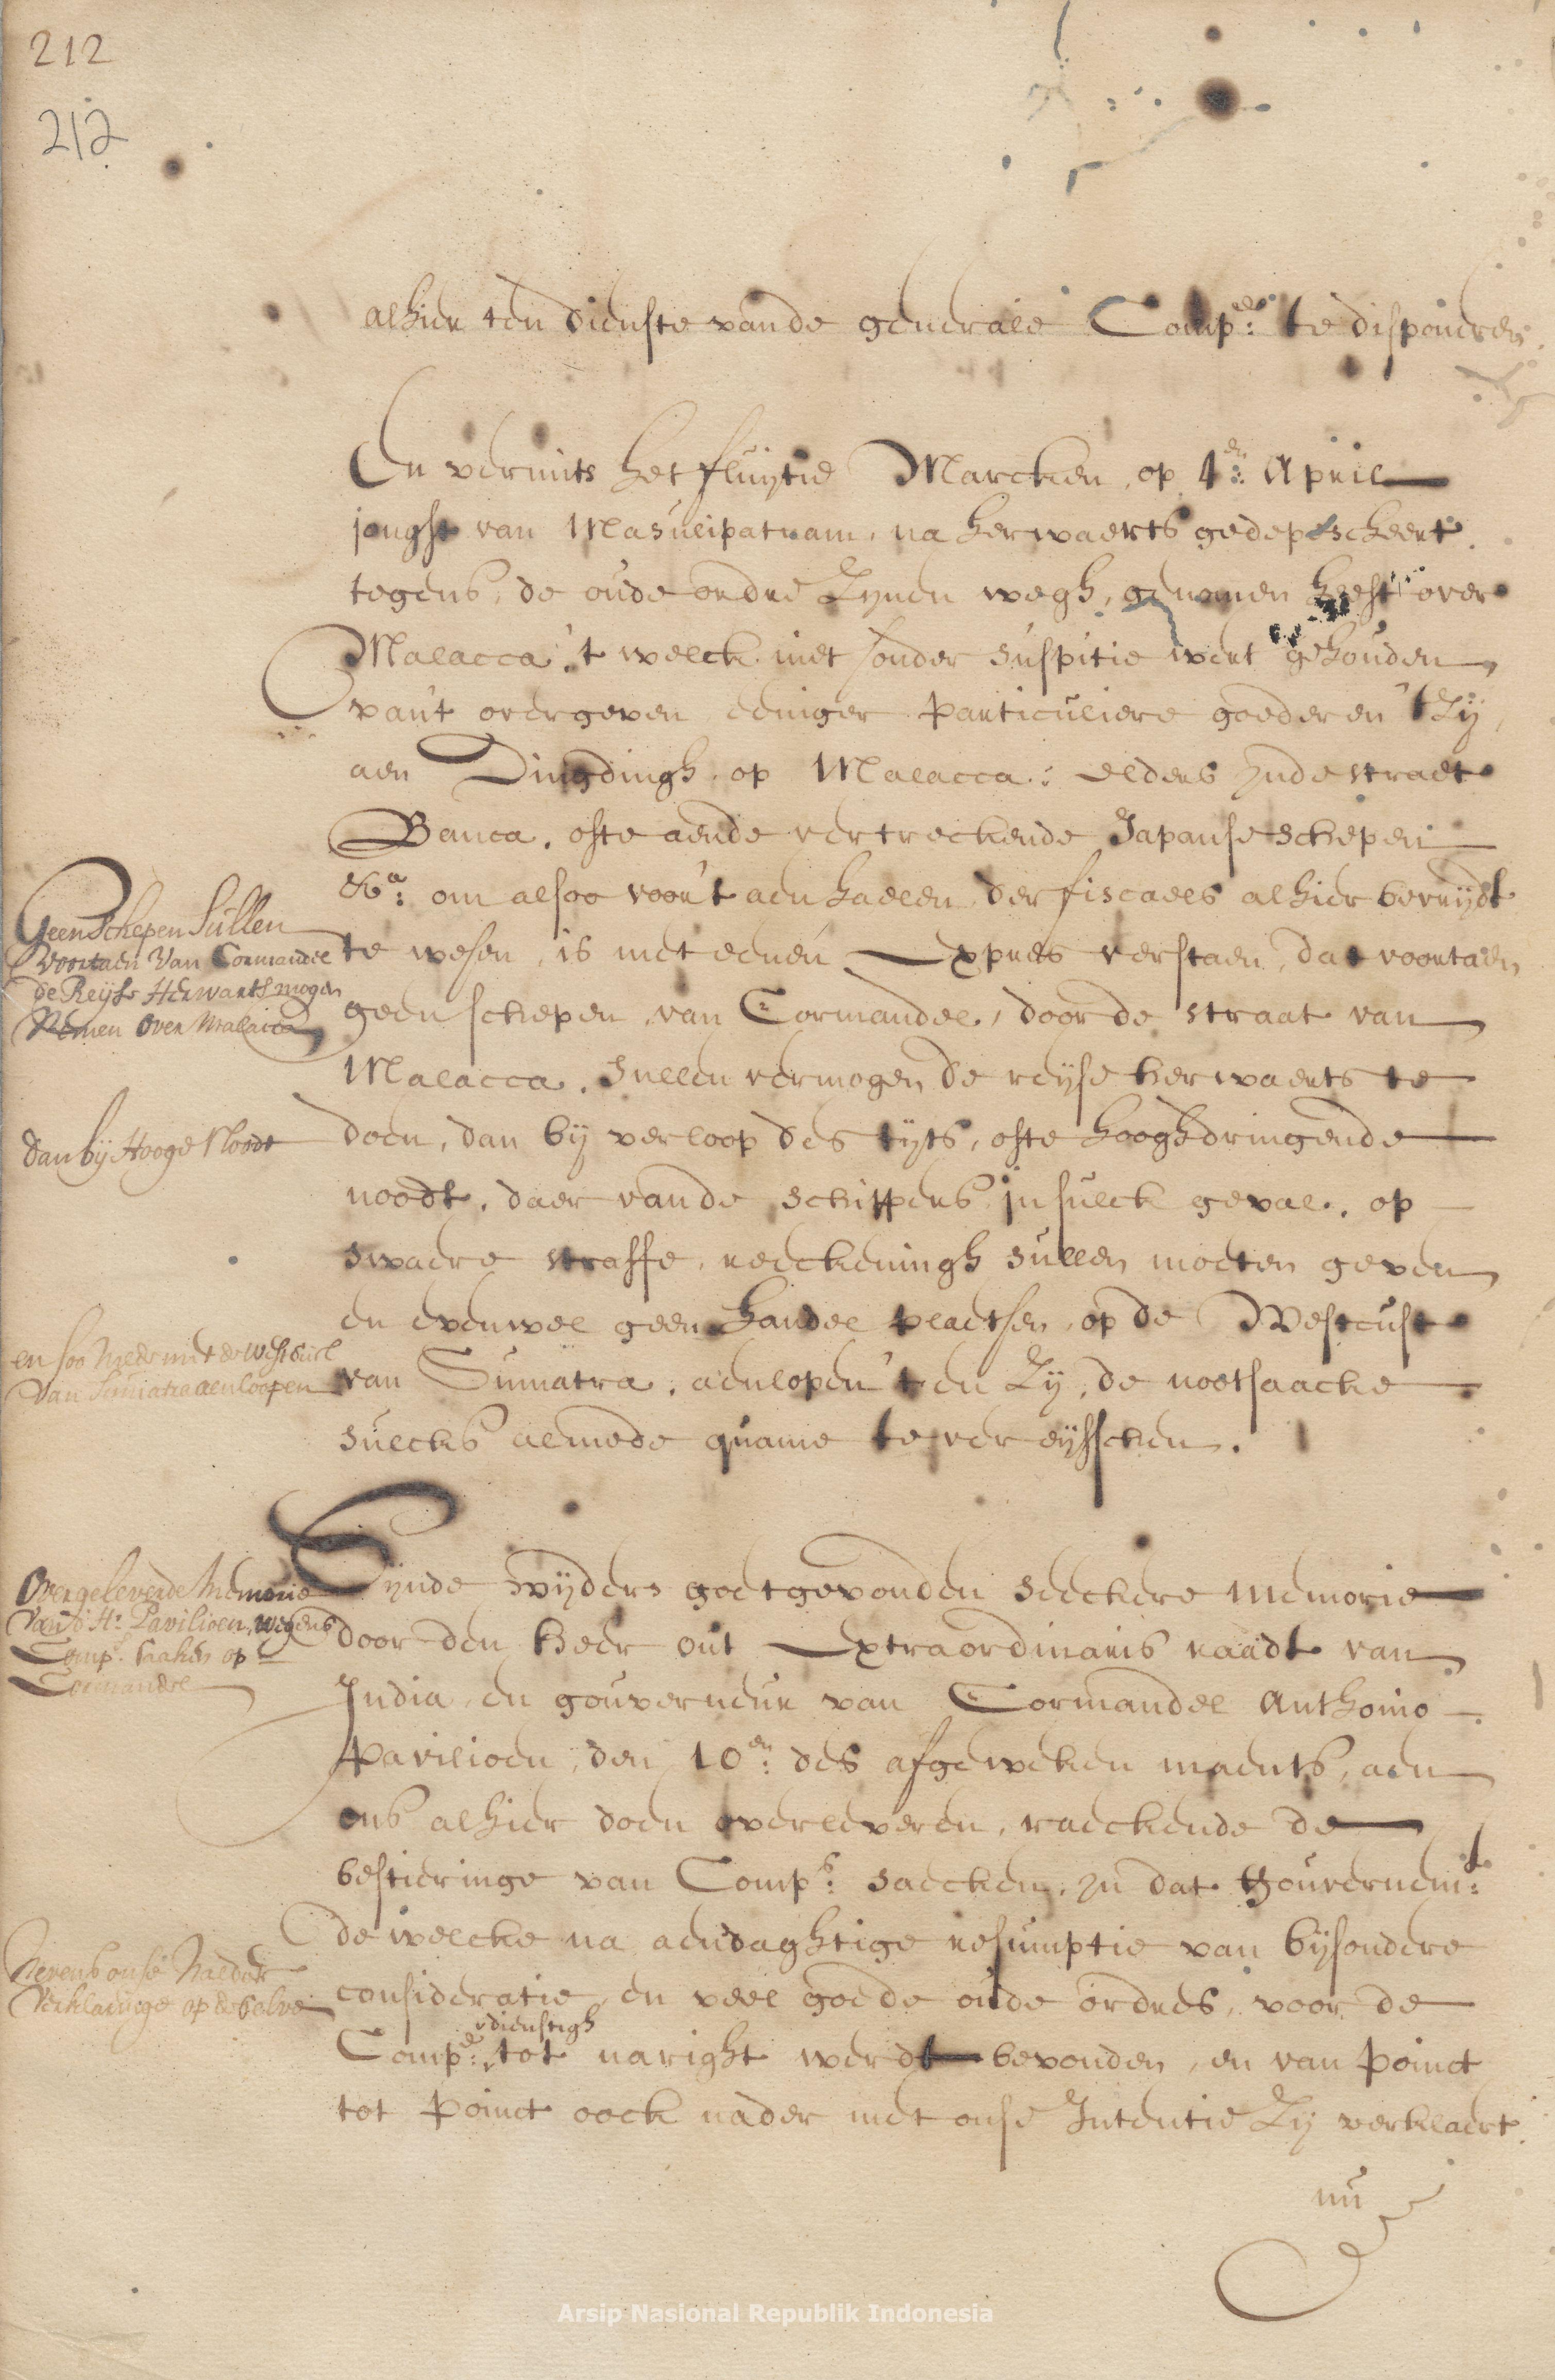 212
212
alhier ten dienste vande generale Compe: te disponeren.
En vermits het fluijtie Marcken, op 4en: April
jongst van Masulipatnam, na herwaerts gedepescheert
tegens, de oude ordre Zijnen wegh, genomen heeft over
Malacca, 't welck niet sonder suspitie wert gehouden
van't overgeven eeniger particuliere goederen 't Zij
aen Dingdingh, op Malacca: elders inde straet
Banca, ofte aende vertreckende Japanse schepen
&a: om alsoo voor 't aen haelen der fiscaels alhier bevrijdt
te wesen, is met eenen Expres verstaen, dat voortaen
geen schepen, van Cormandel, door de straat van
Malacca, sullen vermogen de reijse herwaerts te
doen, dan bij verloop des tijts, ofte hooghdringende
noodt, daer vande schippers in sulck geval, op
swaere straffe, reeckeningh sullen moeten geven
en evenwel geen handel plaetsen, op de Westcust
van Sumatra, aenlopen 't en Zij, de nootsaacke
sulcks almede quame te vereijsschen.
Geen Schepen Sullen
Voortaen Van Cormandel
de Reijse Herwarts mogen
Nemen Over Malacca
dan bij Hooge Noodt
en soo mede niet de Westcust
van Sumatra aenloopen
Sijnde wijders goetgevonden seeckere memorie
door den heer out Extraordinaris raadt van
India, en gouverneur van Cormandel Anthonio
Pavilioen, den 10en: des afgeweken maents, aen
ons alhier doen overleveren, raeckende de
bestieringe van Comps: saecken, in dat Gouvernemt:
de welcke na aendaghtige resumptie van bijsondere
consideratie, en veel goede oude ordres, voor de
Compe: dienstigh tot naright werdt bevonden, en van poinct
tot poinct oock nader met onse Intentie Zij verklaert
nu
Overgeleverde Memorie
Van d' Hr: Pavilioen, wegens
Comps: saken op
Cormandel
Nevens onse Nader
Verklaringe op deselve
Arsip Nasional Republik Indonesia